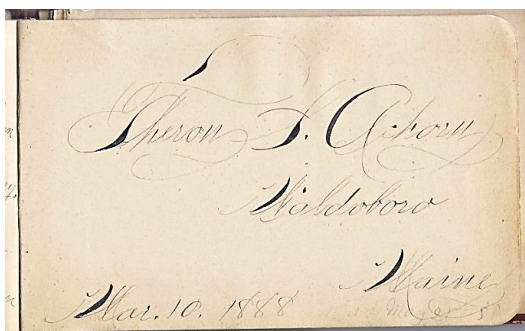 Theron S. Achorn
Waldoboro
Maine
Mar. 10. 1888